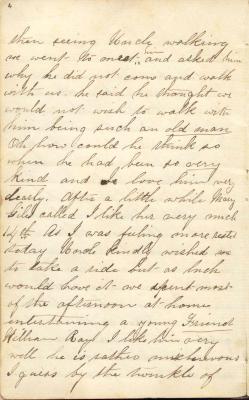 4
then seeing Uncle walking
we went to meet him and asked him
why he did not come and walk
with us. he said he thought we
would not wish to walk with
him being such an old man
Oh how could he think so
when he had been so very
kind and I love him very
dearly. After a little while Mary
Gill called I like her very much
As I was feeling more rested
today Uncle kindly wished us
to take a ride but as luck
would have it we spent most
of the afternoon at home
entertaining a young Friend
William Ray I like him very
well he is rather mischievous
I guess by the twinkle of